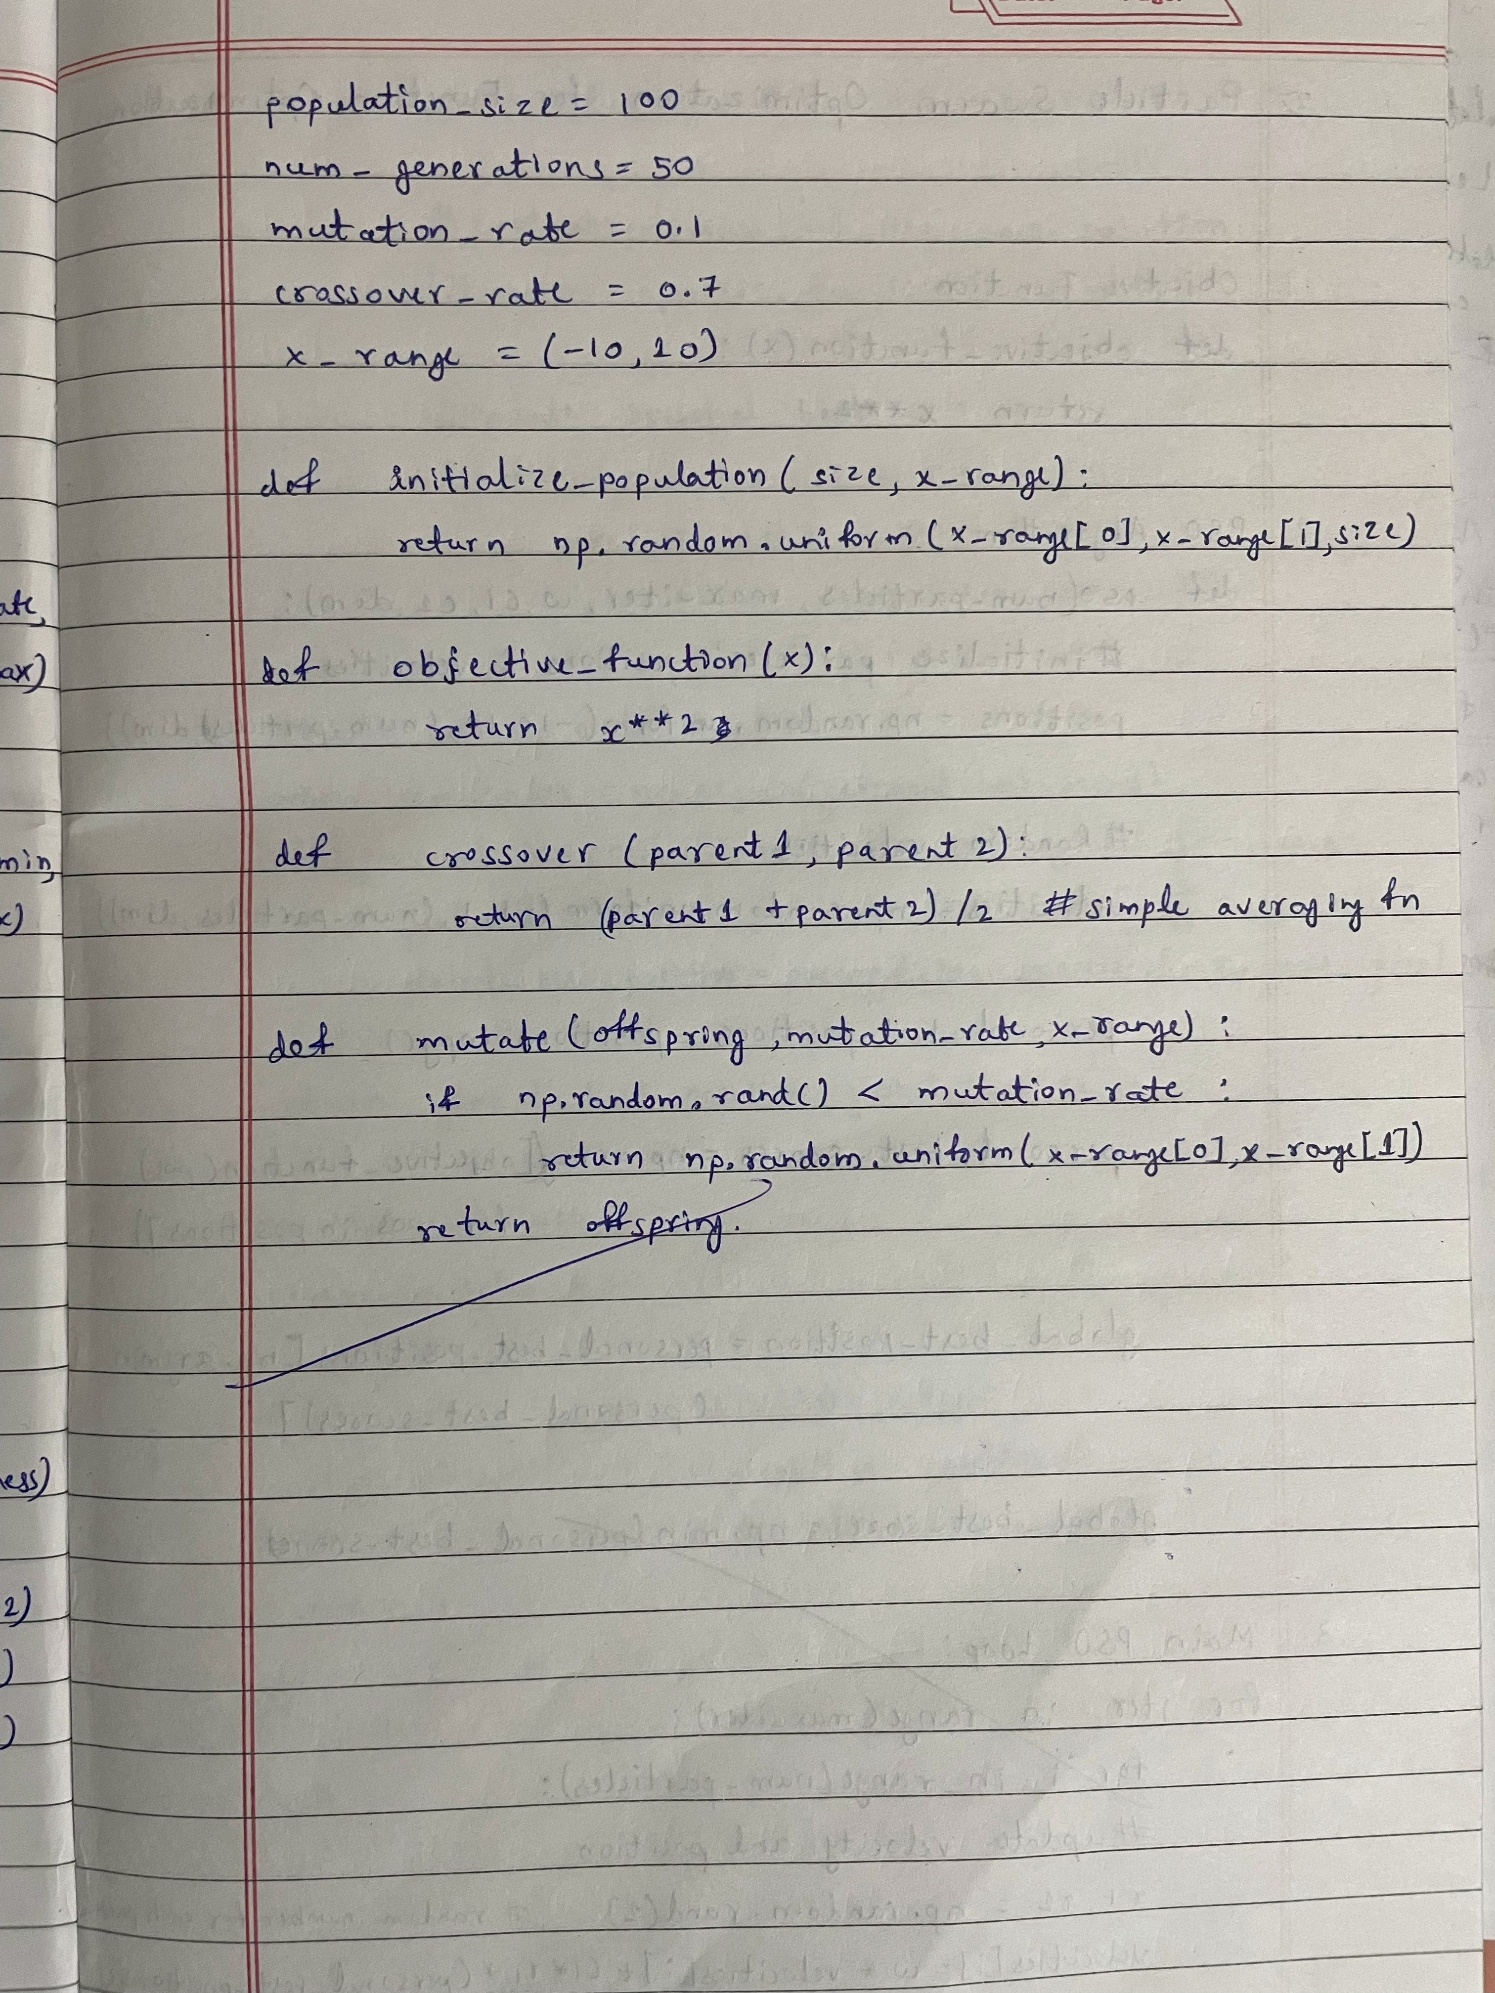 population_size = 100
num_generations = 50
mutation_rate = 0.1
crossover_rate = 0.7
x_range = (-10, 10)
def initialize_population ( size, x_range) :
return np. random. uniform (x_range[0], x_range[1], size)
def objective_function (x) :
return x**2
def crossover (parent1, parent 2) :
return (parent1 + parent 2) /2 # simple averaging fn
def mutate (offspring, mutation_rate, x_range) :
if np.random.rand() < mutation_rate :
return np.random.uniform( x_range[0], x_range[1])
return offspring.
ate,
ax)
min,
x)
ness)
2)
)
)